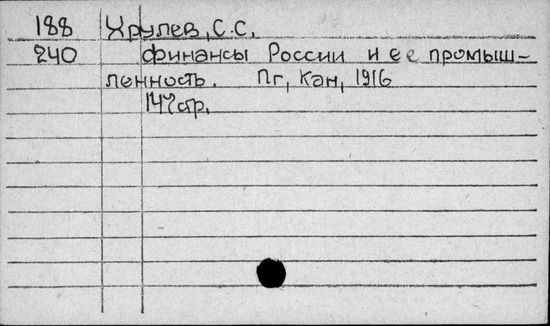 188 Хрулев, С.С.
240 финансы России и ее промыш-
ленность. Пг, Кан, 1916
147 стр.